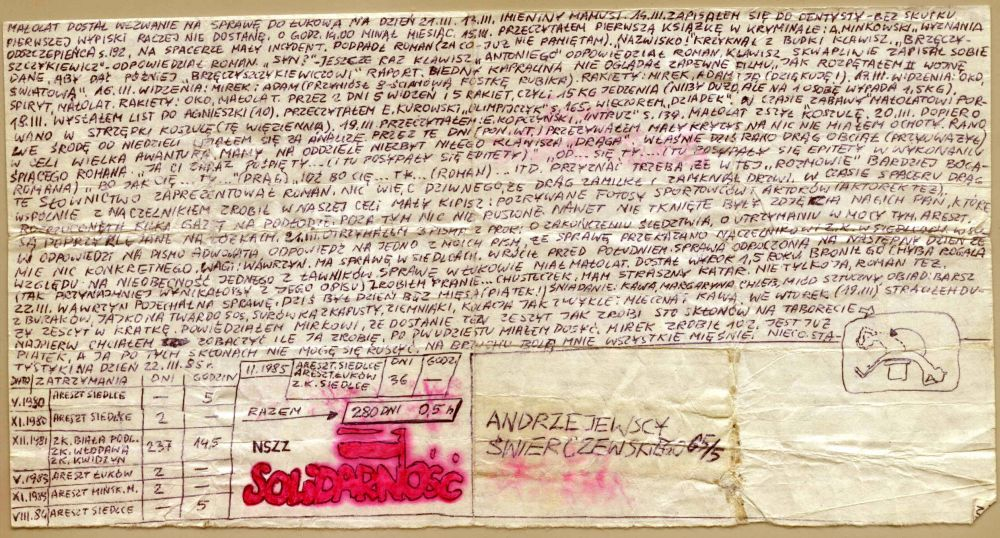 MAŁOLAT DOSTAŁ WEZWANIE NA SPRAWĘ DO ŁUKOWA NA DZIEŃ 21.III. 13.III. IMIENINY MAMUSI. 14.III. ZAPISAŁEM SIĘ DO DENTYSTY - BEZ SKUTKU
PIERWSZEJ WYPISKI RACZEJ NIE DOSTANĘ. O GODZ. 14.00 MINĄŁ MIESIĄC. 15.III. PRZECZYTAŁEM PIERWSZĄ KSIĄŻKĘ W KRYMINALE: A. MINKOWSKI, „WYZNANIA
ODSZCZEPIEŃCA" s. 192. NA SPACERZE MAŁY INCYDENT. PODPADŁ ROMAN (ZA CO - JUŻ NIE PAMIĘTAM). „NAZWISKO" KRZYKNĄŁ Z BUDKI KLAWISZ. „BRZĘCZY-
SZCZYKIEWICZ" - ODPOWIEDZIAŁ ROMAN. „SYN?" - JESZCZE RAZ KLAWISZ. „ANTONIEGO" ODPOWIEDZIAŁ ROMAN. KLAWISZ SKWAPLIWIE ZAPISAŁ SOBIE
DANE, ABY DAĆ PÓŹNIEJ „BRZĘCZYSZCZYKIEWICZOWI" RAPORT. BIEDNY KAPRALINA NIE OGLĄDAŁ ZAPEWNE FILMU „JAK ROZPĘTAŁEM II WOJNĘ
ŚWIATOWĄ". 16.III. WIDZENIA: MIREK, ADAM (PRZYNIÓSŁ 8-ŚCIANOWĄ KOSTKĘ RUBIKA). RAKIETY: MIREK, ADAM I JA (DZIĘKUJĘ!). 17.III. WIDZENIA: OKO,
SPIRYT, MAŁOLAT. RAKIETY: OKO, MAŁOLAT. PRZEZ 2 DNI 5 WIDZEŃ I 5 RAKIET, CZYLI 15 KG JEDZENIA (NIBY DUŻO, ALE NA 1 OSOBĘ WYPADA 1,5 KG).
18.III. WYSŁAŁEM LIST DO AGNIESZKI (10). PRZECZYTAŁEM E. KUROWSKI, „OLIMPIJCZYK" s. 165. WIECZOREM „DZIADEK". W CZASIE „ZABAWY" MAŁOLATOWI POR-
WANO W STRZĘPKI KOSZULĘ (TĘ WIĘZIENNĄ). 19.III PRZECZYTAŁEM: E. KOPCZYŃSKI, „INTRUZ" s. 139. MAŁOLAT ZSZYŁ KOSZULĘ. 20.III. DOPIERO
WE ŚRODĘ OD NIEDZIELI WZIĄŁEM SIĘ ZA ANALIZĘ. PRZEZ TE DNI (PON., WT.) PRZEŻYWAŁEM MAŁY KRYZYS NA NIC NIE MIAŁEM OCHOTY. RANO,
W CELI WIELKA AWANTURA. MAMY NA ODDZIELE NIEZBYT MIŁEGO KLAWISZA „DRĄGA". WŁAŚNIE DZIŚ RANO DRĄG OBECIĄŁ (PRZYUWAŻYŁ)
ŚPIĄCEGO ROMANA. „JA CI ZARAZ POŚPIĘ TY... (I TU POSYPAŁY SIĘ EPITETY)". „OD... SIĘ, TY... (I TU POSYPAŁY SIĘ EPITETY W WYKONANIU
ROMANA) „BO JAK CIĘ... TY..." (DRĄG). „JUŻ BO CIĘ... TY..." (ROMAN)... ITD. PRZYZNAĆ TRZEBA, ŻE W TEJ „ROZMOWIE" BARDZIEJ BOGA-
TE SŁOWNICTWO ZAPREZENTOWAŁ ROMAN. NIC WIĘC DZIWNEGO, ŻE DRĄG ZAMILKŁ I ZAMKNĄŁ DRZWI. W CZASIE SPACERU DRĄG
WSPÓLNIE Z NACZELNIKIEM ZROBIŁ W NASZEJ CELI MAŁY KIPISZ: POZRYWANE FOTOSY SPORTOWCÓW I AKTORÓW (AKTOREK TEŻ),
ROZRZUCONYCH KILKA GAZET NA PODŁODZE. POZA TYM NIC NIE RUSZONE. NAWET NIE TKNIĘTE BYŁY ZDJĘCIA NAGICH PAŃ, KTÓRE
SĄ POPRZYKLEJANE NA ŁÓŻKACH. 21.III. OTRZYMAŁEM 3 PISMA Z PROK.: O ZAKOŃCZENIU ŚLEDZTWA, O UTRZYMANIU W MOCY TYM. ARESZT.
W ODPOWIEDZI NA PISMO ADWOKATA, ODPOWIEDŹ NA JEDNO Z MOICH PISM, ŻE SPRAWĘ PRZEKAZANO NACZELNIKOWI Z.K. W SIEDLCACH. W SU-
MIE NIC KONKRETNEGO. WAGI: WAWRZYN. MA SPRAWĘ W SIEDLCACH. WRÓCIŁ PRZED POŁUDNIEM. SPRAWA ODROCZONA NA NASTĘPNY DZIEŃ ZE
WZGLĘDU NA NIEOBECNOŚĆ JEDNEGO Z ŁAWNIKÓW. SPRAWĘ W ŁUKOWIE MIAŁ MAŁOLAT. DOSTAŁ WYROK 1,5 ROKU. BRONIŁ GO CHYBA ROGALA
(TAK PRZYNAJMNIEJ WYNIKAŁOBY Z JEGO OPISU). ZROBIŁEM PRANIE... CHUSTECZEK, MAM STRASZNY KATAR. NIE TYLKO JA, ROMAN TEŻ.
22.III. WAWRZYN POJECHAŁ NA SPRAWĘ. DZIŚ BYŁ DZIEŃ BEZ MIĘSA (PIĄTEK!) ŚNIADANIE: KAWA, MARGARYNA, CHLEB, MIÓD SZTUCZNY. OBIAD: BARSZCZ
Z BURAKÓW, JAJKO NA TWARDO SOS, SURÓWKA Z KAPUSTY, ZIEMNIAKI, KOLACJA JAK ZWYKLE: MLECZNA I KAWA. WE WTOREK (19.III) STRAULEHDU-
ŻY ZESZYT W KRATKĘ. POWIEDZIAŁEM MIRKOWI, ŻE DOSTANIE TEN ZESZYT JAK ZROBI STO SKŁONÓW NA TABORECIE.
NAJPIERW CHCIAŁEM ZOBACZYĆ ILE JA ZROBIĘ. PO DWUDZIESTU MIAŁEM DOSYĆ. MIREK ZROBIŁ 102. JEST JUŻ
PIĄTEK, A JA PO TYCH SKŁONACH NIE MOGĘ SIĘ RUSZYĆ. NA BRZUCHU BOLĄ MNIE WSZYSTKIE MIĘŚNIE. NIECO STA-
TYSTYKI NA DZIEŃ 22.III.85 r.
DATA ZATRZYMANIA DNI GODZIN
V.1980 ARESZT SIEDLCE — 5
XI.1980 ARESZT SIEDLCE 2 —
XII.1981 ZK. BIAŁA PODL. ZK. WŁODAWA ZK. KWIDZYN 237 19,5
V.1983 ARESZT ŁUKÓW 2 —
XI.1983 ARESZT MIŃSK. M. 2 —
VIII.84 ARESZT SIEDLCE — 5
II.1985 ARESZT SIEDLCE ARESZT ŁUKÓW Z.K. SIEDLCE DNI 36 GODZ. —
RAZEM 280 DNI 0,5 h
NSZZ
SOLIDARNOŚĆ
ANDRZEJEWSCY
ŚWIERCZEWSKIEGO 65/5